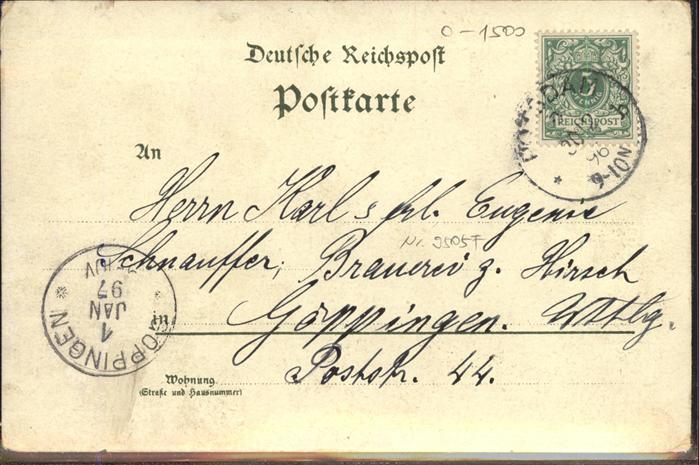 0-1500
Deutsche Reichspost
Postkarte
5
REICHSPOST
POTSDAM
96
9-10N
An
Herrn Karl & frl. Eugenie
Nr. 9505T
Schnauffer, Brauerei z. Hirsch
in Göppingen. Wttbg.
Poststr. 44.
GÖPPINGEN
1
JAN
97
Wohnung
(Straße und Hausnummer)